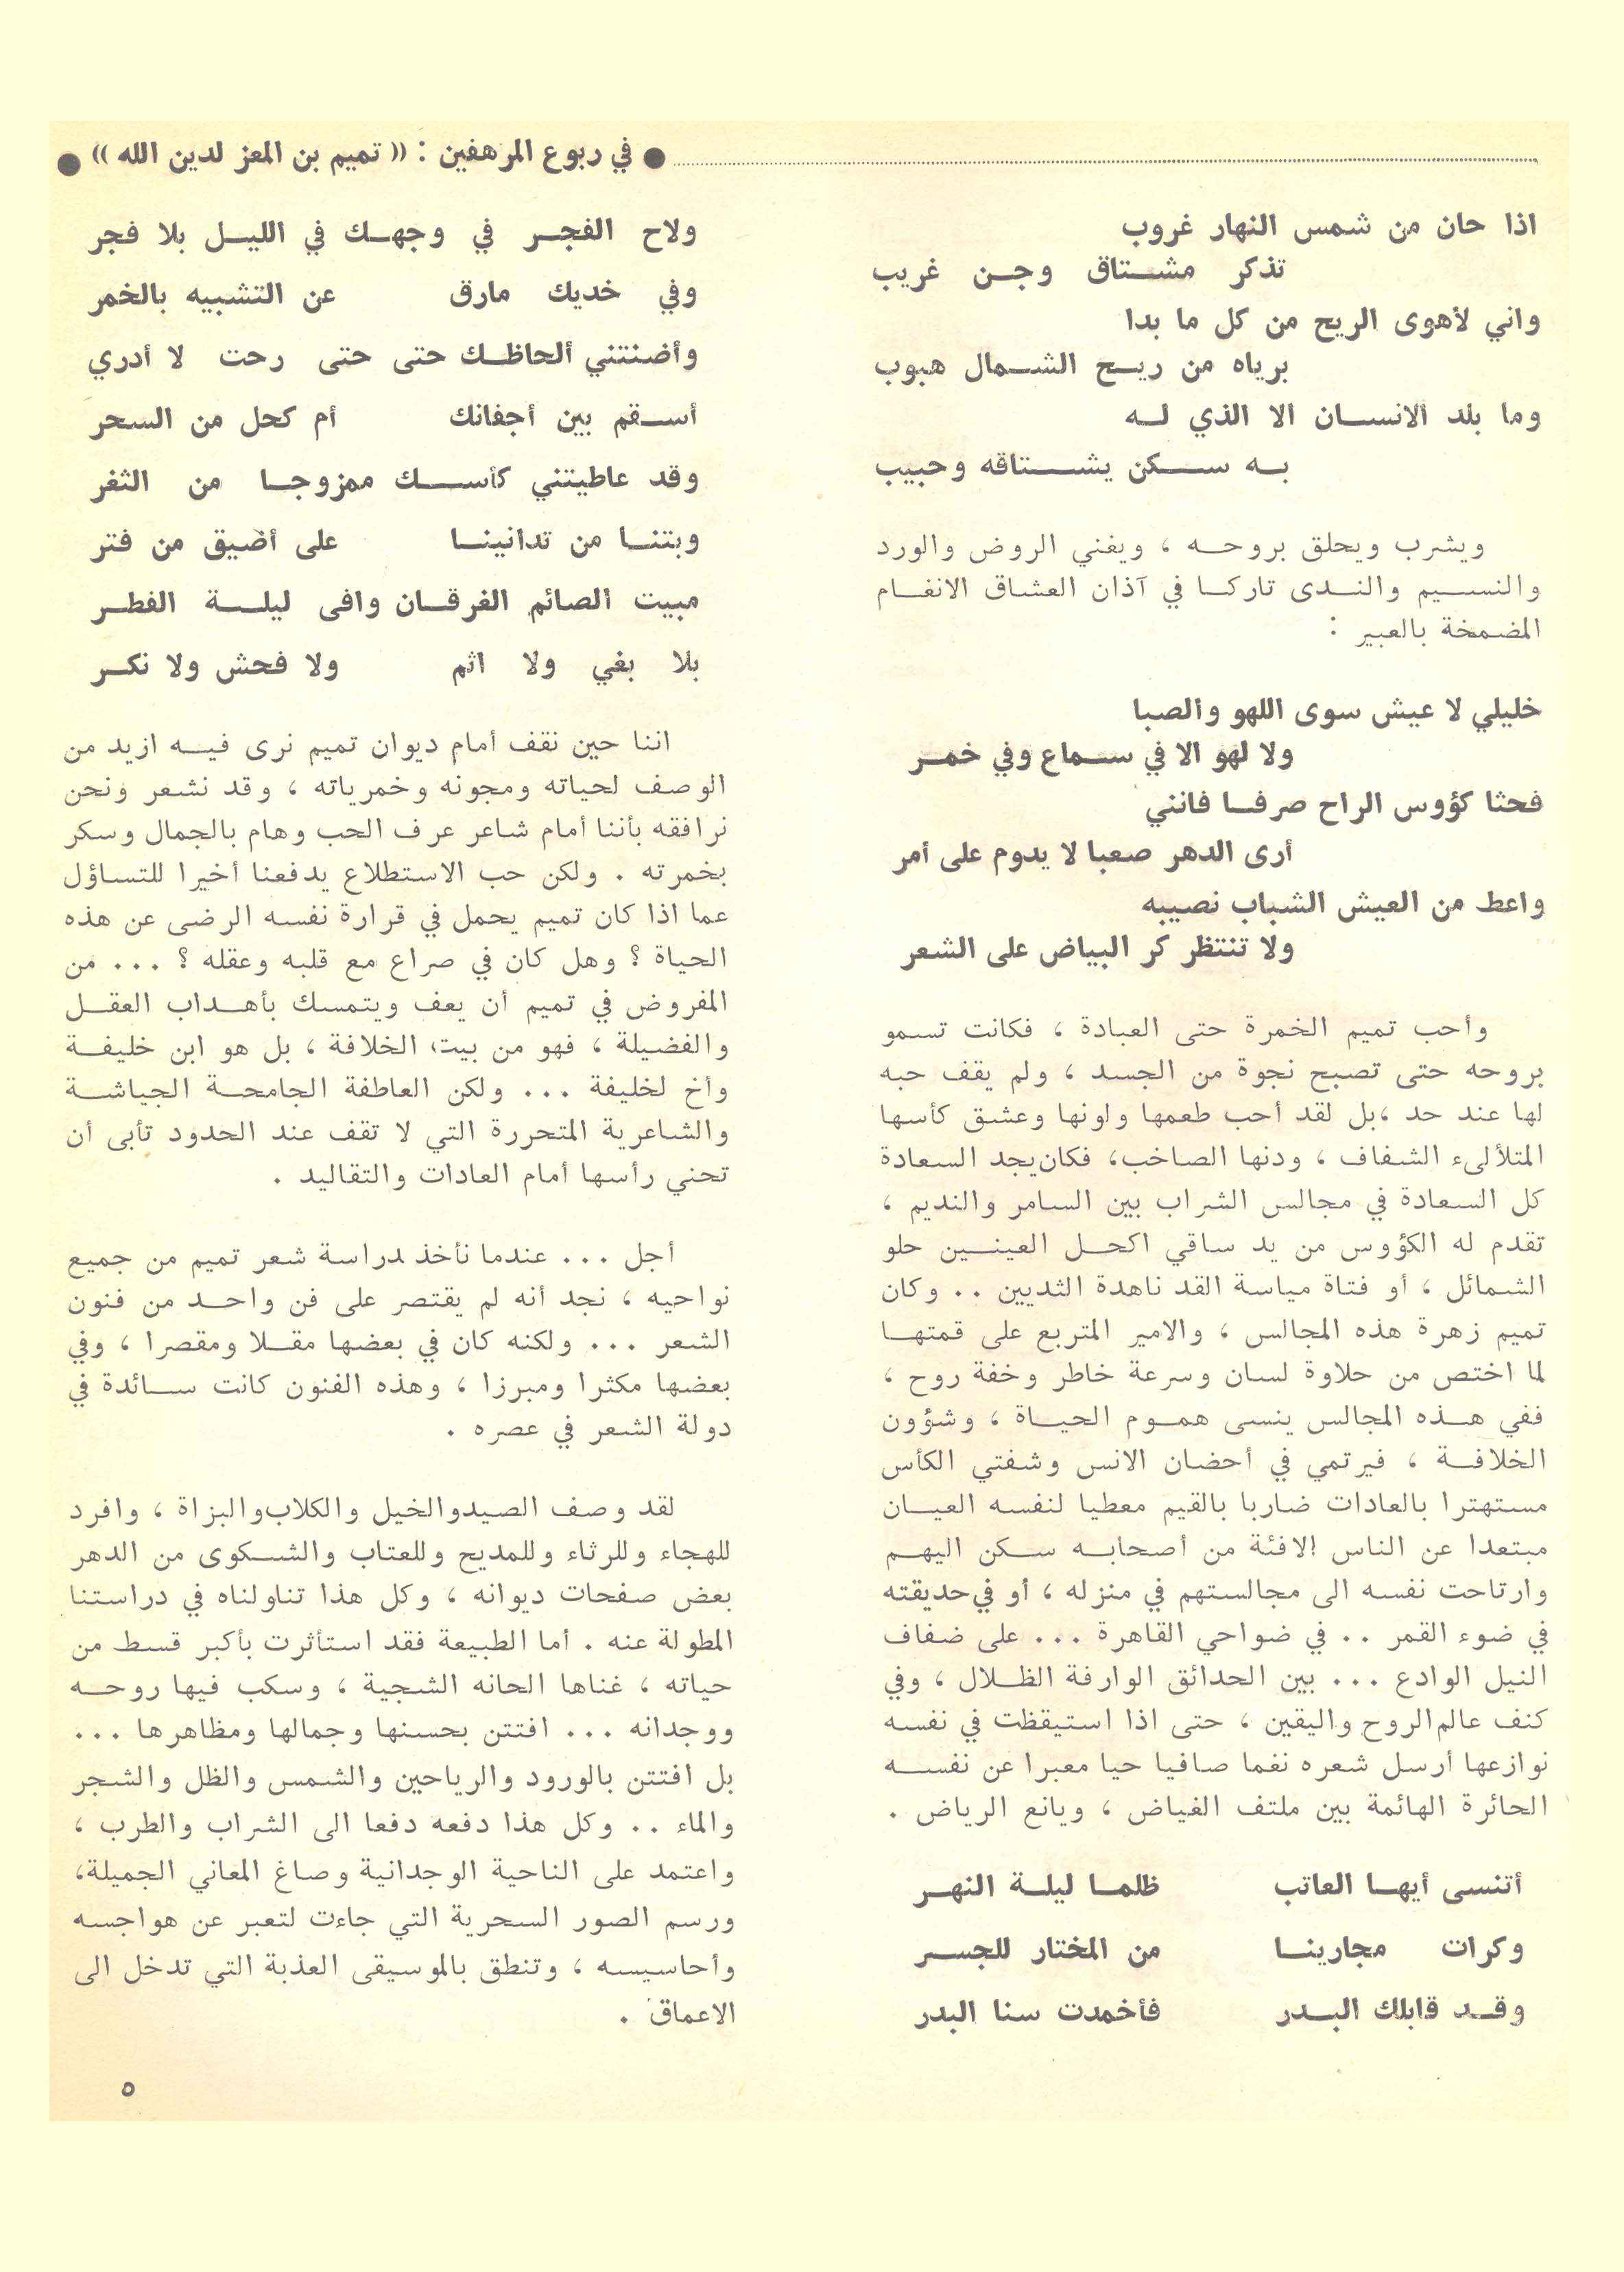 ● في ربوع المرهفين : (( تميم بن المعز لدين الله )) ●
اذا حان من شمس النهار غروب
تذكر مشتاق وجن غريب
واني لأهوى الريح من كل ما بدا
برياه من ريح الشمال هبوب
وما بلد الانسان الا الذي له
به سكن يشتاقه وحبيب
ويشرب ويحلق بروحه ، ويغني الروض والورد
والنسيم والندى تاركا في آذان العشاق الانغام
المضمخة بالعبير :
خليلي لا عيش سوى اللهو والصبا
ولا لهو الا في سماع وفي خمر
فحثا كؤوس الراح صرفا فانني
أرى الدهر صعبا لا يدوم على أمر
واعط من العيش الشباب نصيبه
ولا تنتظر كر البياض على الشعر
وأحب تميم الخمرة حتى العبادة ، فكانت تسمو
بروحه حتى تصبح نجوة من الجسد ، ولم يقف حبه
لها عند حد ،بل لقد أحب طعمها ولونها وعشق كأسها
المتلألىء الشفاف ، ودنها الصاخب، فكان يجد السعادة
كل السعادة في مجالس الشراب بين السامر والنديم ،
تقدم له الكؤوس من يد ساقي اكحل العينين حلو
الشمائل ، أو فتاة مياسة القد ناهدة الثديين .. وكان
تميم زهرة هذه المجالس ، والامير المتربع على قمتها
لما اختص من حلاوة لسان وسرعة خاطر وخفة روح ،
ففي هذه المجالس ينسى هموم الحياة ، وشؤون
الخلافة ، فيرتمي في أحضان الانس وشفتي الكأس
مستهترا بالعادات ضاربا بالقيم معطيا لنفسه العيان
مبتعدا عن الناس الافئة من أصحابه سكن اليهم
وارتاحت نفسه الى مجالستهم في منزله ، أو في حديقته
في ضوء القمر .. في ضواحي القاهرة ... على ضفاف
النيل الوادع ... بين الحدائق الوارفة الظلال ، وفي
كنف عالم الروح واليقين ، حتى اذا استيقظت في نفسه
نوازعها أرسل شعره نغما صافيا حيا معبرا عن نفسه
الحائرة الهائمة بين ملتف الغياض ، ويانع الرياض .
أتنسى أيها العاتب ظلما ليلة النهر
وكرات مجارينا من المختار للجسر
وقد قابلك البدر فأخمدت سنا البدر
ولاح الفجر في وجهك في الليل بلا فجر
وفي خديك مارق عن التشبيه بالخمر
وأضنتني ألحاظك حتى حتى رحت لا أدري
أسقم بين أجفانك أم كحل من السحر
وقد عاطيتني كأسك ممزوجا من الثغر
وبتنا من تدانينا على أضيق من فتر
مبيت الصائم الفرقان وافى ليلة الفطر
بلا بغي ولا اثم ولا فحش ولا نكر
اننا حين نقف أمام ديوان تميم نرى فيه ازيد من
الوصف لحياته ومجونه وخمرياته ، وقد نشعر ونحن
نرافقه بأننا أمام شاعر عرف الحب وهام بالجمال وسكر
بخمرته . ولكن حب الاستطلاع يدفعنا أخيرا للتساؤل
عما اذا كان تميم يحمل في قرارة نفسه الرضى عن هذه
الحياة ؟ وهل كان في صراع مع قلبه وعقله ؟ ... من
المفروض في تميم أن يعف ويتمسك بأهداب العقل
والفضيلة ، فهو من بيت الخلافة ، بل هو ابن خليفة
وأخ لخليفة ... ولكن العاطفة الجامحة الجياشة
والشاعرية المتحررة التي لا تقف عند الحدود تأبى أن
تحني رأسها أمام العادات والتقاليد .
أجل ... عندما نأخذ لدراسة شعر تميم من جميع
نواحيه ، نجد أنه لم يقتصر على فن واحد من فنون
الشعر ... ولكنه كان في بعضها مقلا ومقصرا ، وفي
بعضها مكثرا ومبرزا ، وهذه الفنون كانت سائدة في
دولة الشعر في عصره .
لقد وصف الصيد والخيل والكلاب والبزاة ، وافرد
للهجاء وللرثاء وللمديح وللعتاب والشكوى من الدهر
بعض صفحات ديوانه ، وكل هذا تناولناه في دراستنا
المطولة عنه . أما الطبيعة فقد استأثرت بأكبر قسط من
حياته ، غناها الحانه الشجية ، وسكب فيها روحه
ووجدانه ... افتتن بحسنها وجمالها ومظاهرها ...
بل افتتن بالورود والرياحين والشمس والظل والشجر
والماء .. وكل هذا دفعه دفعا الى الشراب والطرب ،
واعتمد على الناحية الوجدانية وصاغ المعاني الجميلة،
ورسم الصور السحرية التي جاءت لتعبر عن هواجسه
وأحاسيسه ، وتنطق بالموسيقى العذبة التي تدخل الى
الاعماق .
٥